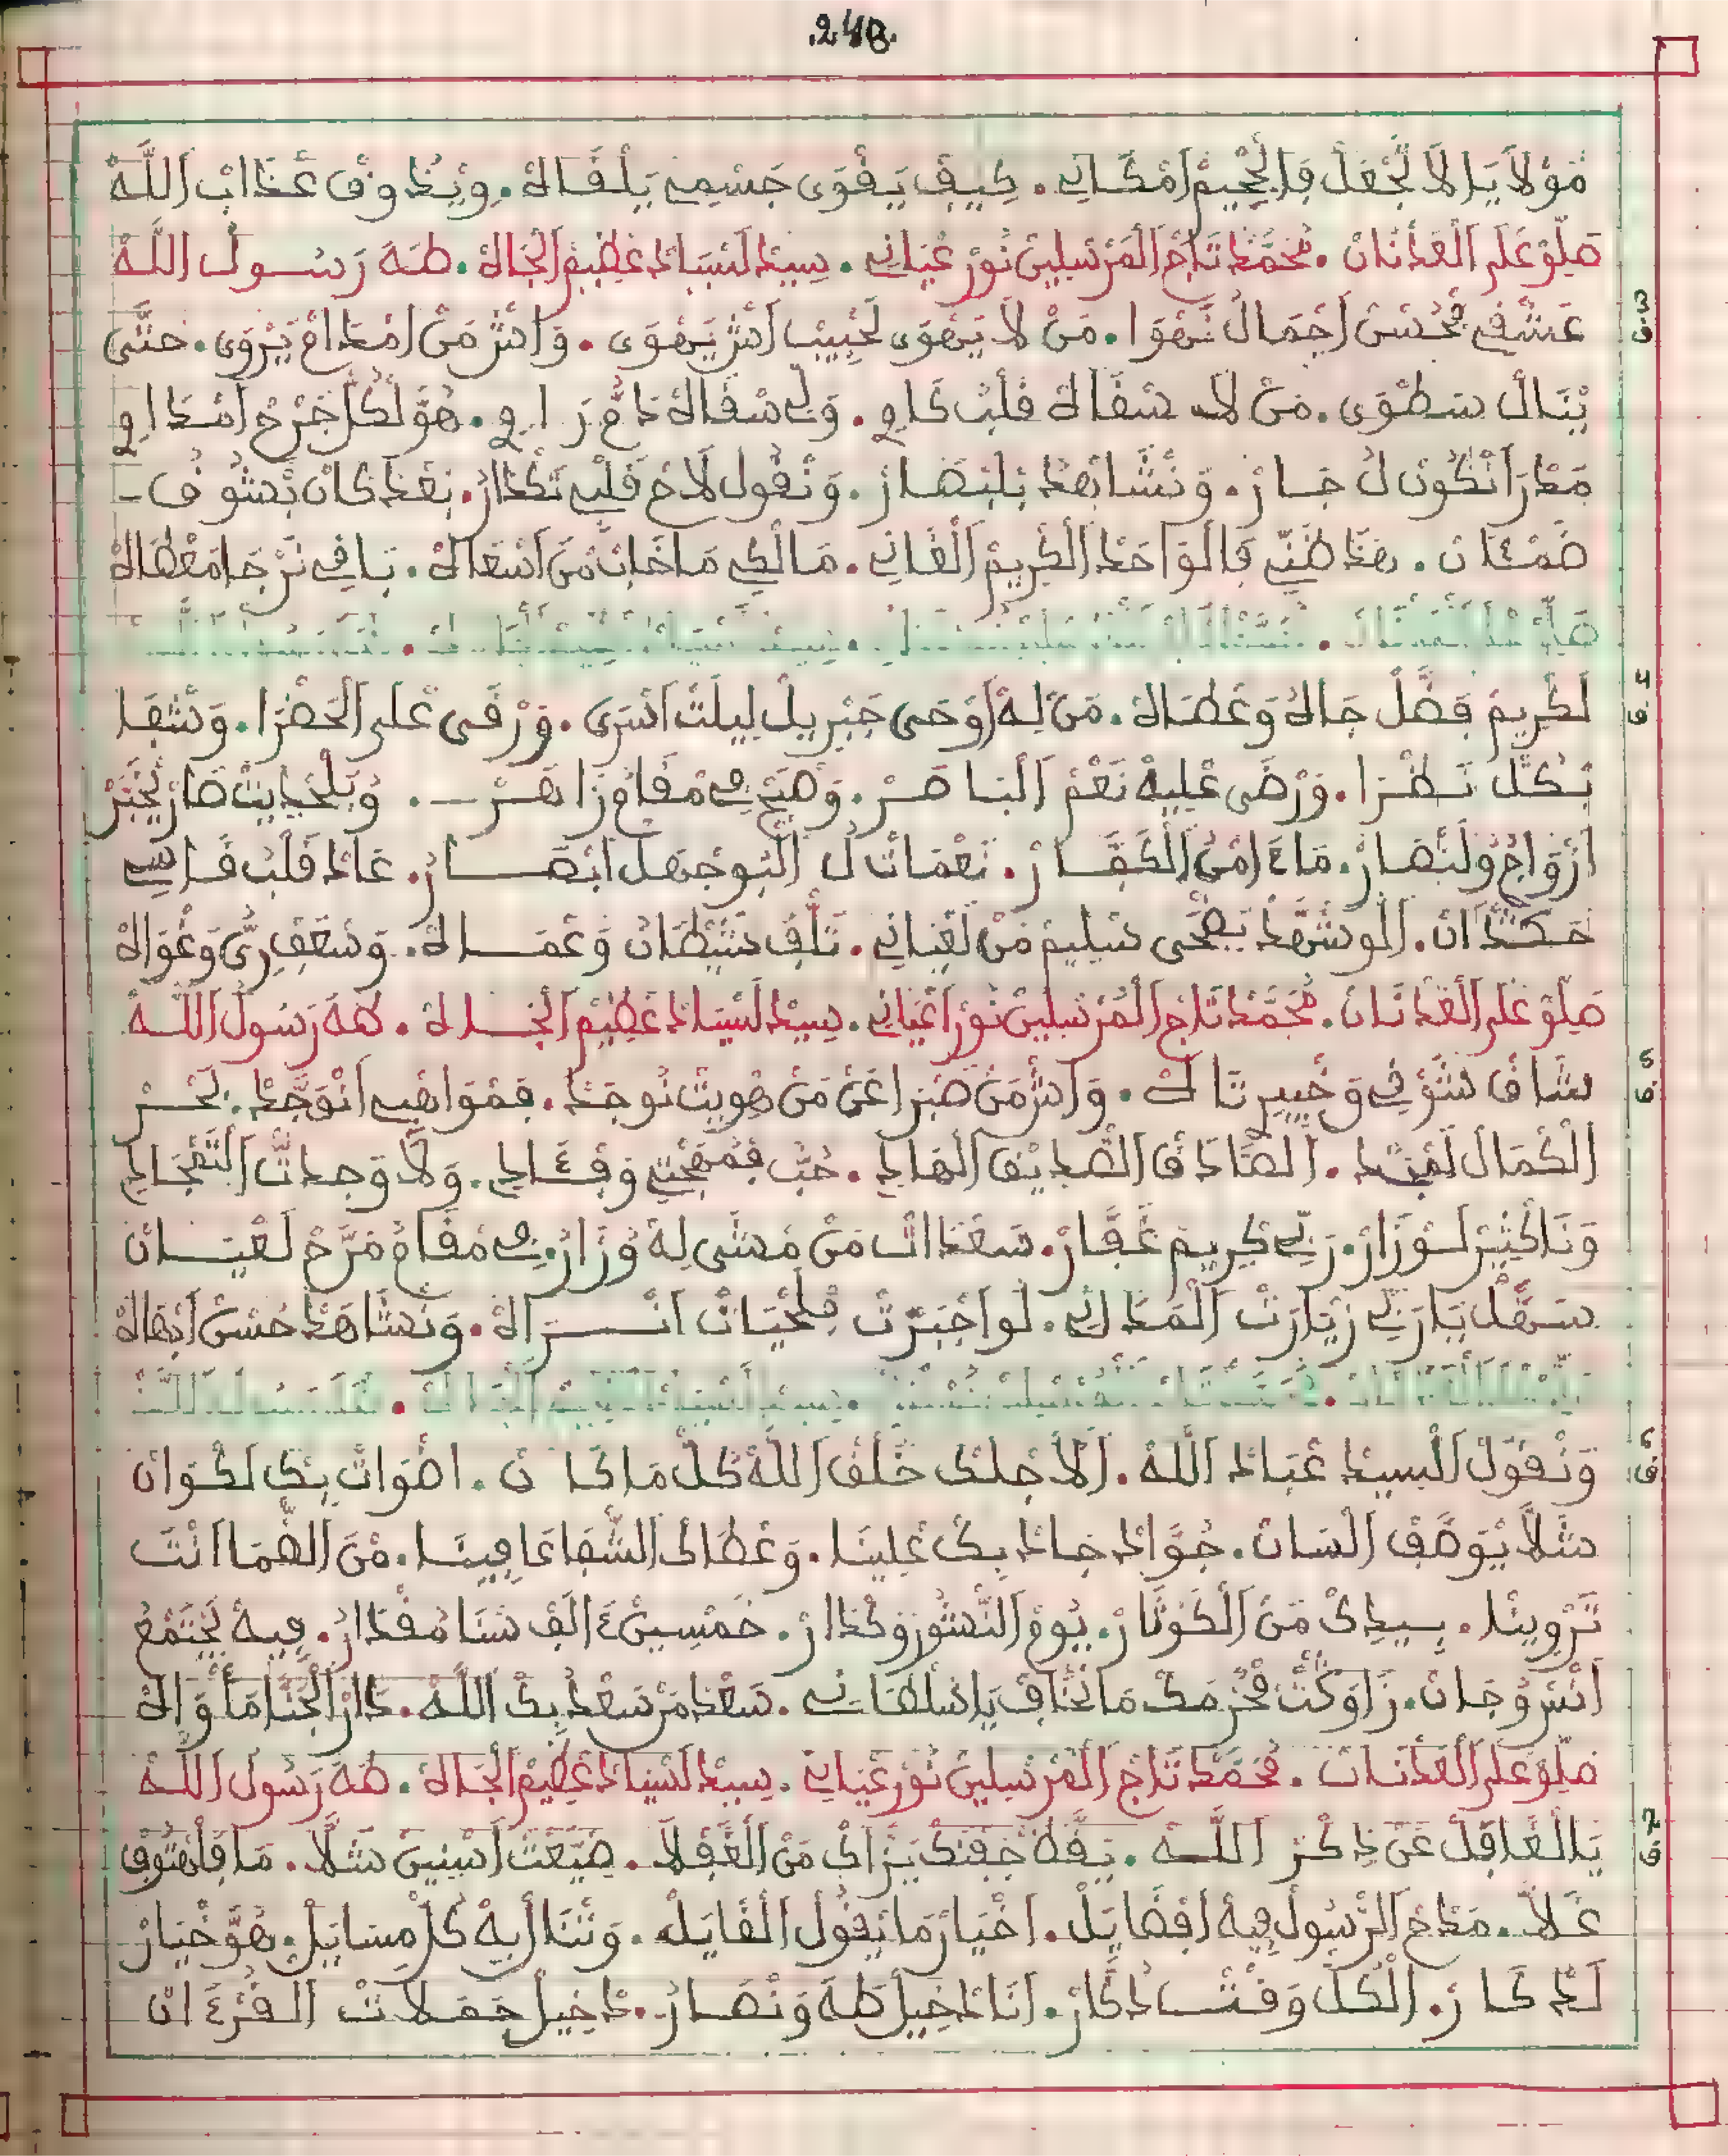 .248.
مَوْلاَ يَا لاَ تَجْعَلْ فَالجّْحِيمْ اَمْكَانِي. كِيفْ يَقْوَى جَسْمِي يَلْقَاهْ. وِيْذُوقْ عَذَابْ اَللَّهْ
صَلِّوْ عَلَى اَلْعَدْنَانْ. مُحَمَّدْ تَاجْ اَلْمَرْسَلِينْ نُورْ عْيَانِي. سِيدْ لَسْيَادْ عَظِيمْ اَلْجَاهْ. طَهَ رَسُولْ اللَّهْ
عَشْقِي فْحُسْنْ اَجْمَالُ نَهْوَا. مَنْ لاَ يَهْوَى لَحْبِيبْ اَشْ يَهْوَى. وَاشْ مَنْ اَمْدَاحْ يَرْوَى. حَتَّى
يْنَالْ سَطْوَى. مَنْ لاَ سْقَاهْ قَلْبُ كَاوِي. وَلِّي سْقَاهْ دَمُّ رَاوِي. هُوَّ لْكُلْ جَرْحْ اَمْدَاوِي
مَدْرَا نْكُونْ لُ جَارْ. وَنْشَاهْدُ بِلَبْصَارْ. وَنْقُولْ لاَحْ قَلْبِي تَكْدَارُ. بَعْدْ كَانْ بْشُوقُ
ضَمْئَانْ. هَذَا ظَنِّي فَالْوَاحْدْ اَلْكْرِيمْ اَلْغَانِي. مَالْكِي مَا خَابْ مَنْ اَسْعَاهْ. بَاقِي نَرْجَا مَعْطَاهْ
لَكْرِيمْ فَضَّلْ جَاهُ وَعْطَاهْ. مَنْ لِهْ اَوْحَى جَبْرِيلْ لِيلَتْ اَسْرَى. وَرْقَى عْلَى اَلْحَضْرَا. وَشْفَا
بْكُلّْ نَظْرَا. وَرْضَى عْلِيهْ نَعْمْ اَلنَّاصَرْ. وَصْبَحْ فِي مْقَامْ زَاهَرْ. وُبَلْحْدِيثْ صَارْ يْخَبَّرْ
اَزْوَاجُ وَلَنْصَارْ. مَاءَامْنُ اَلْكُفَّارْ. نَعْمَاتْ لُ اَلْبُوجَهْلْ اَبْصَارُ. عَادْ قَلْبُ قَاسِي
صَلِّوْ عَلَى اَلْعَدْنَانْ. مُحَمَّدْ تَاجْ اَلْمُرْسَلِينْ نُورْ اَعْيَانِي. سِيدْ لَسْيَادْ عَظِيمْ اَلْجَاهْ. طَهَ رَسُولْ اللَّهْ
شَاقْ شَوْقِي وَخْيِيرْتَاهْ. وَاشْ مَنْ صْبَرْ اَعَنْ مَنْ هْوِيتْ نُوجَدْ. فَمْوَاهْبِي اَنْوَجَّدْ. بَحْرْ
اَلْكْمَالْ لَمْجَّدْ. اَلصَّادَقْ اَلصَّدِيقْ اَلْهَادِي. حُبُّ فْمُهْجْتِي وَفْئَادِي. وَلاَ وْجِدْتْ اَلتَّفْجَاجِي
وَنَا كْثِيرْ لَوْزَارْ. رَبِّي كْرِيمْ غَفَّارْ. سَعْدَاتْ مَنْ مْشَى لِهْ وُزَارُ. فِي مْقَامُ مَرَّحْ لَعْيَانْ
سَهَّلْ يَارَبِّي زْيَارَتْ اَلْمَدَانِي. لَوَاجْبَرْتْ فَلْحْيَاتْ اَنْرَاهْ. وَنْشَاهَدْ حُسْنْ اَبْهَاهْ
وَنْقُولْ اَلْسِيدْ عْبَادْ اَللَّهْ. اَلاَجْلَكْ خْلَقْ اَللَّهْ كُلّْ مَا كَانْ. اَضْوَاتْ بِكْ لَكْوَانْ
شَلاَّ يْوَصَفْ اَلْسَانْ. جُوَّادْ جَادْ بِكْ عْلِينَا. وَعْطَاكْ اَلشّْفَاعَا فِينَا. مْنَ اَلظّْمَا اَنْتَ
تَرْوِينَا. بِيدِكْ مَنْ اَلْكَوْثَارْ. يُومْ اَلنّْشُورْ وَكْدَارْ. خَمْسِينْ ءَالَفْ سْنَا مُقْدَارُ. فِيهْ يَجْتَمْعُ
اَنْسْ وُجَانْ. زَاوَكْتْ فْحُرْمَكْ مَا نْخَافْ يَا سَلْطَانِي. سَعْدْ مَنْ سَعْدُ بِكْ اَللَّهْ. دَارْ اَلْجَنَّا مَأْوَاهْ
صَلِّوْ عَلَى اَلْعَدْنَانْ. مُحَمَّدْ تَاجْ اَلْمَرْسَلِينْ نُورْ عْيَانِي. سِيدْ لَسْيَادْ عَظِيمْ اَلْجَاهْ. طَهَ رَسُولْ اللَّهْ
يَا الْغَافَلْ عَنْ ذِكْرْ اَللَّهْ. يَقَّظْ جَفْنَكْ بَزَّاكْ مَنْ اَلْغَفْلاَ. ضَيَّعْتْ اَسْنِينْ شَلاَّ. مَا فَاَلْهْتُوفْ
غَلاَّ. مَدْحْ اَلرّْسُولْ فِيهْ اَفْضَايَلْ. اَخْيَارْ مَا يْقُولْ اَلْقَايَلْ. وَتْنَالْ بِهْ كُلْ مْسَايَلْ. هُوَّ خْيَارْ
لَدْكَارْ. اَلْكُلّْ وَقْتْ اَدْكَارْ. اَنَا دْخِيلْ طَهَ وَنْصَارُ. دْخِيلْ حَمَلاَتْ اَلْقُرْءَانْ